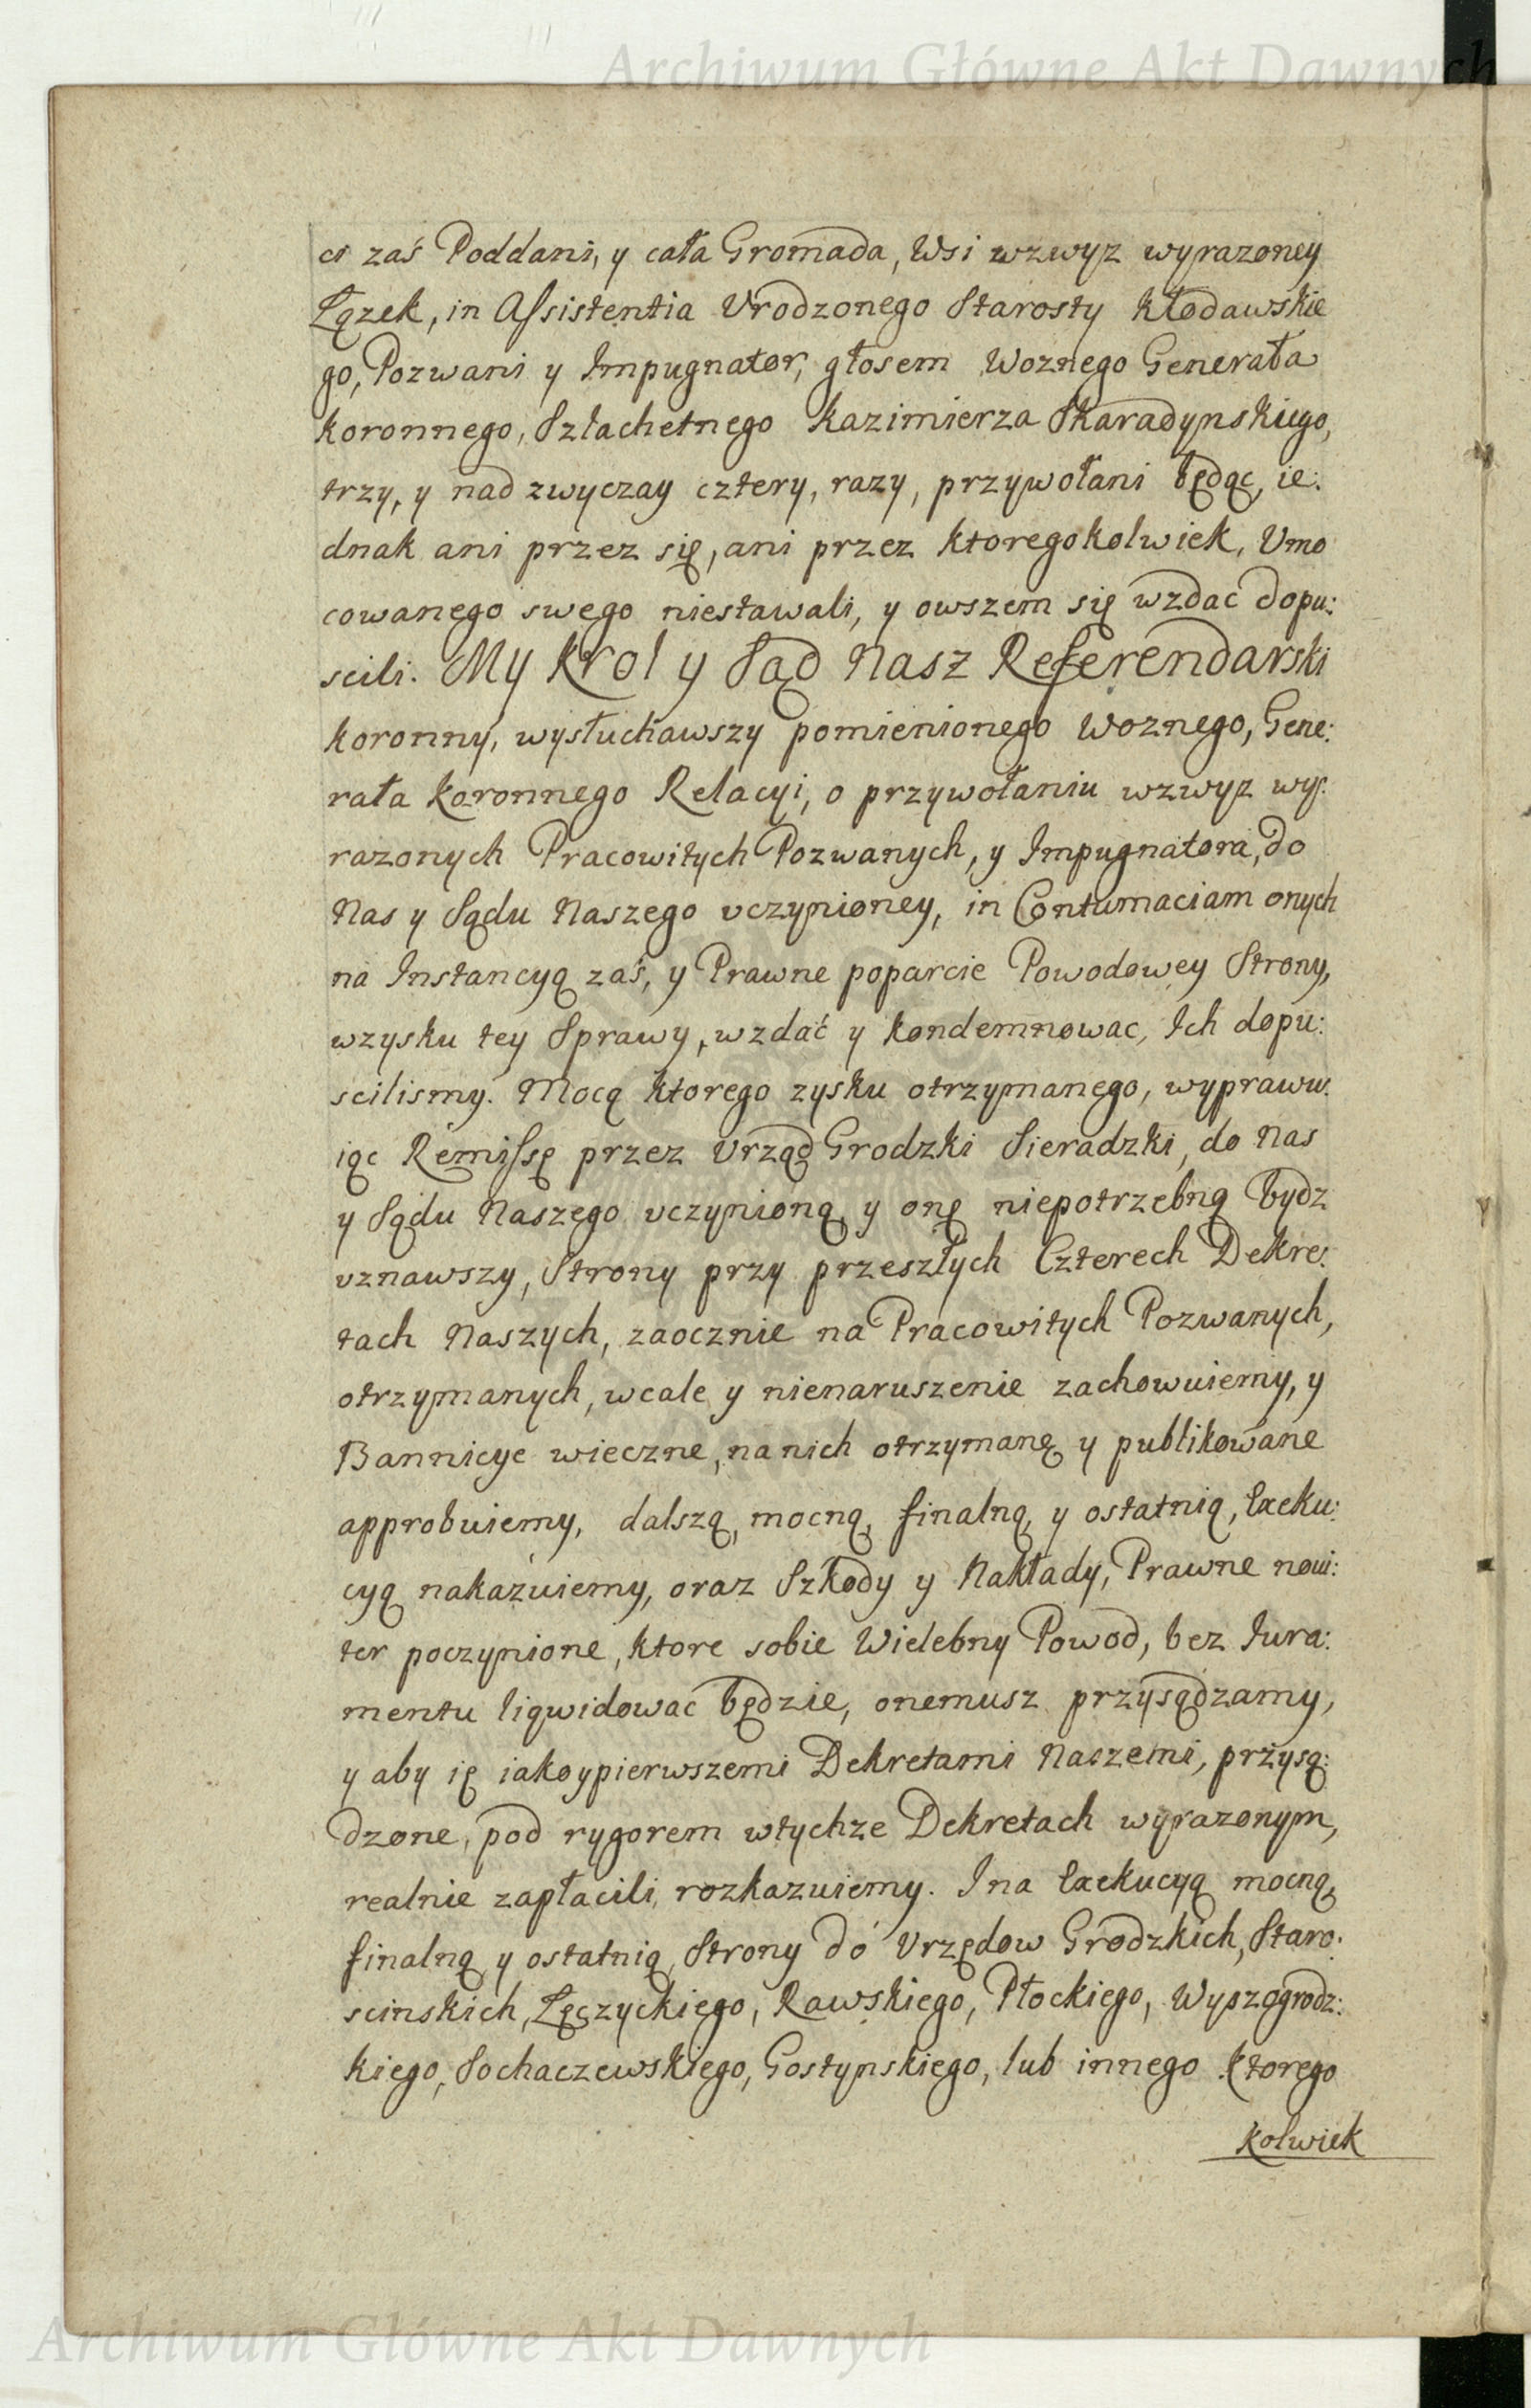 Archiwum Główne Akt Dawnych
ci zaś Poddani, y cała Gromada, Wsi wzwyz wyrazoney
Łązek, in Assistentia Vrodzonego Starosty Kłodawskie
go, Pozwani y Impugnator, głosem Woznego Generała
Koronnego, Szlachetnego Kazimierza Skaradynskiego,
trzy, y nad zwyczay cztery, razy, przywołani będąc, ie:
dnak ani przez się, ani przez ktoregokolwiek, Vmo
cowanego swego niestawali, y owszem się wzdac dopu:
scili. My Krol y Sąd Nasz Referendarski
Koronny, wysłuchawszy pomienionego Woznego, Gene:
rała Koronnego Relacyi, o przywołaniu wzwyz wy:
razonych Pracowitych Pozwanych, y Impugnatora, do
Nas y Sądu Naszego vczynioney, in Contumaciam onych
na Instancyą zaś, y Prawne poparcie Powodowey Strony,
wzysku tey Sprawy, wzdać y kondemnowac, Ich dopu:
scilismy. Mocą ktorego zysku otrzymanego, wyprawu:
iąc Remissę przez Vrząd Grodzki Sieradzki, do Nas
y Sądu Naszego vczynioną, y onę niepotrzebną bydz
vznawszy, Strony przy przeszłych Czterech Dekre:
tach Naszych, zaocznie na Pracowitych Pozwanych,
otrzymanych, wcale y nienaruszenie zachowuiemy, y
Bannicye wieczne, na nich otrzymanę y publikowane
approbuiemy, dalszą, mocną, finalną, y ostatnią, Exeku:
cyą nakazuiemy, oraz Szkody y Nakłady, Prawne novi:
ter poczynione, ktore sobie Wielebny Powod, bez Iura:
mentu liqwidowac będzie, onemusz przysądzamy,
y aby ię iakoypierwszemi Dekretami Naszemi, przysą:
dzone, pod rygorem wtychze Dekretach wyrazonym,
realnie zapłacili, rozkazuiemy. I na Exekucyą mocną,
finalną y ostatnią, Strony do Vrzędow Grodzkich, Staro:
scinskich, Łęczyckiego, Rawskiego, Płockiego, Wyszogrodz:
kiego, Sochaczewskiego, Gostynskiego, lub innego ktorego
kolwiek
Archiwum Główne Akt Dawnych